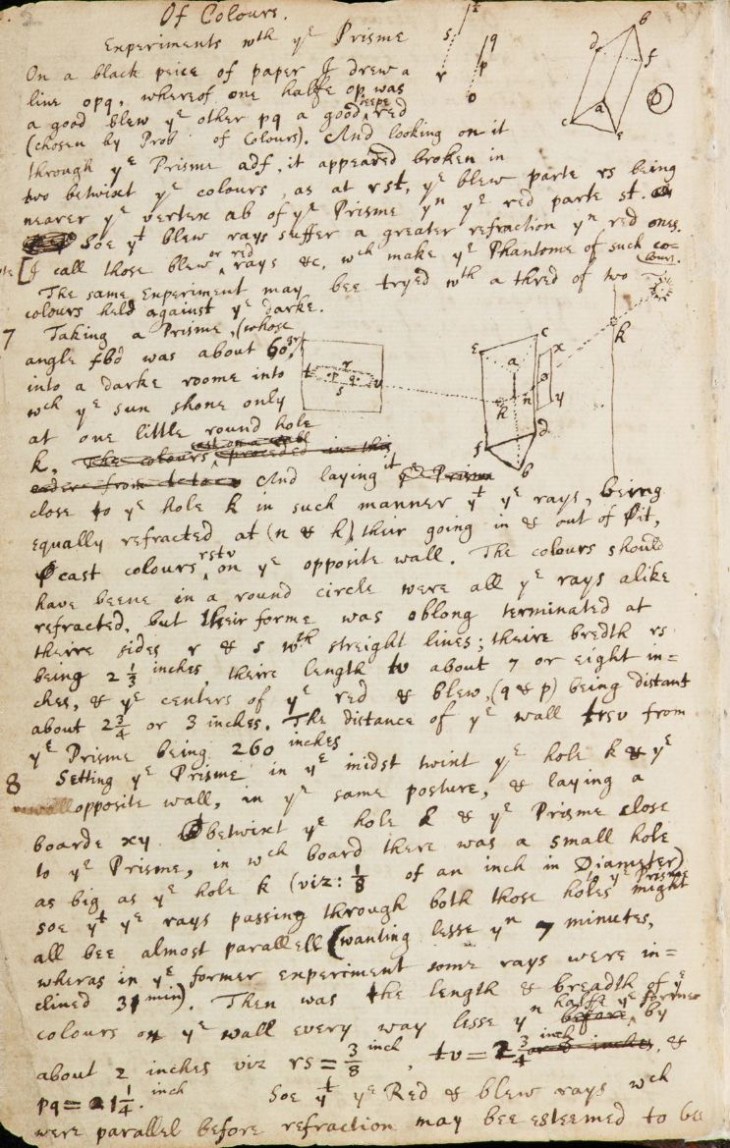 2
Of Colours.
Experiments wth ye Prisme
On a black peice of paper I drew a
line opq, whereof one halfe op was
a good blew ye other pq a good deepe red
(chosen by Prob of Colours). And looking on it
through ye Prisme adf, it appeared broken in
two betwixt ye colours, as at rst, ye blew parte rs being
nearer ye vertex ab of ye Prisme yn ye red parte st.
Soe yt blew rays suffer a greater refraction yn red ones.
[I call those blew or red rays &c, wch make ye Phantome of such colours.
The same Experiment may bee tryed wth a thred of two
colours held against ye darke.
7 Taking a Prisme, (whose
angle fbd was about 60gr)
into a darke roome into
wch ye sun shone only
at one little round hole
k. And laying it
close to ye hole k in such manner yt ye rays, being
equally refracted at (n & h) their going in & out of it,
cast colours rstv on ye opposite wall. The colours should
have beene in a round circle were all ye rays alike
refracted, but their forme was oblong terminated at
theire sides r & s wth streight lines; theire bredth rs
being 2 1/3 inches, theire length tv about 7 or eight in=
ches, & ye centers of ye red & blew, (q & p) being distant
about 2 3/4 or 3 inches. The distance of ye wall trsv from
ye Prisme being 260 inches
8 Setting ye Prisme in ye midst twixt ye hole k & ye
opposite wall, in ye same posture, & laying a
boarde xy betwixt ye hole k & ye Prisme close
to ye Prisme, in wch board there was a small hole
as big as ye hole k (viz: 1/8 of an inch in Diameter)
soe yt ye rays passing through both those holes to ye Prisme might
all bee almost parallell (wanting lesse yn 7 minutes,
wheras in ye former experiment some rays were in=
clined 31 min). Then was the length & breadth of ye
colours on ye wall every way lesse yn halfe ye former by
about 2 inches viz rs = 3/8 inch, tv = 2 3/4 inch, &
pq = 1 1/4 inch. Soe yt ye Red & blew rays wch
were parallel before refraction may bee esteemed to be